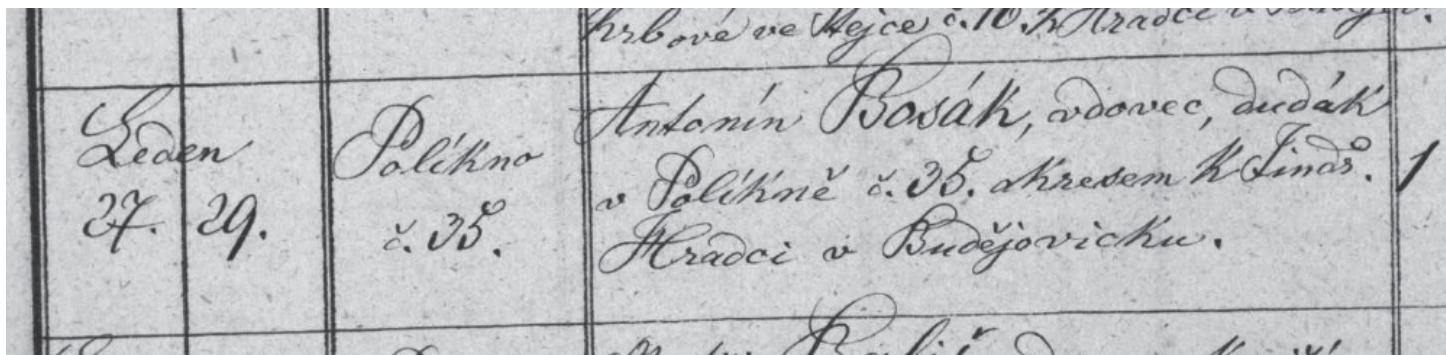 krbové ve Stejce č. 10. k Hradci v
Leden
27. 29.
Polikno
č. 35.
Antonín Bosák, vdovec, dudák
v Polikně č. 35. okresem k Jindř.
Hradci v Budějovicku.
1